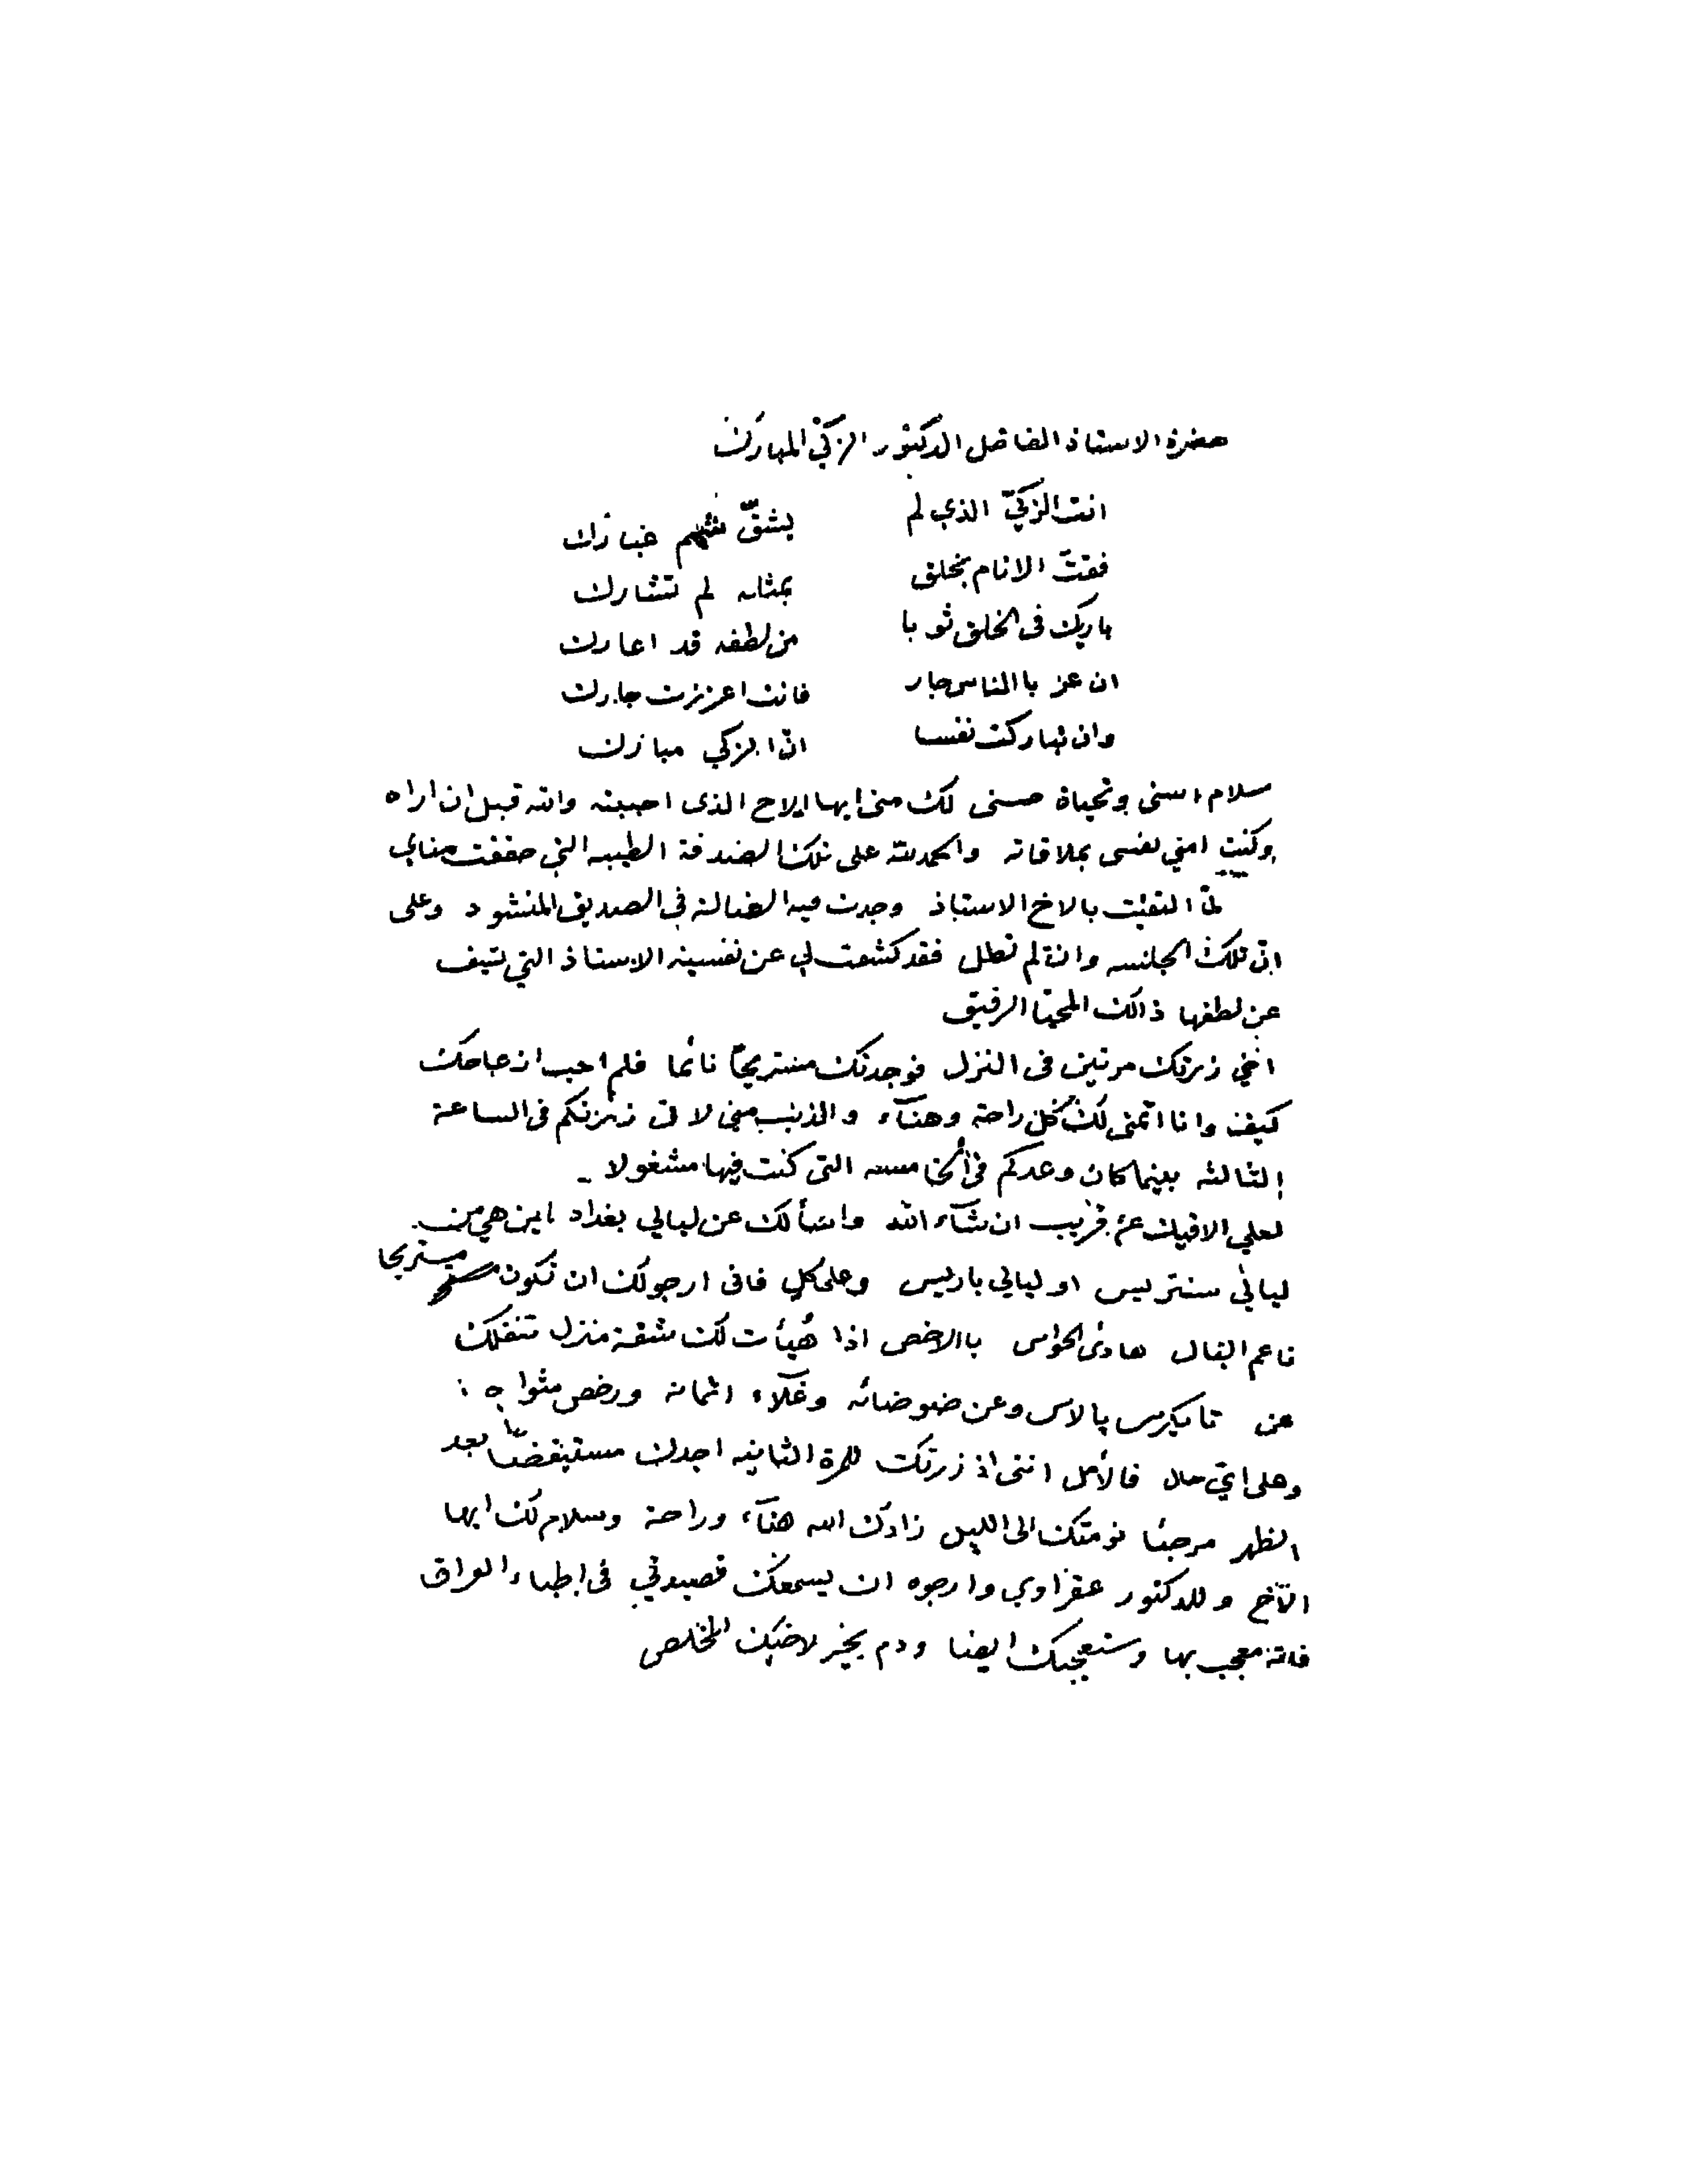 حضرة الاستاذ الفاضل الدكتور الزكيّ المبارك
انت الزكيّ الذي لم يشقّ شهم غبارك
فقتَ الانام بخلق بمثله لم تشارك
باريك في الخلق ثوبا من لطفه قد اعارك
ان عز باالناس جار فانت اعززت جارك
وان تباركت نفسا انّ الزكي مبارك
سلام اسنى وتحياة حسنى لك مني ايها الاخ الذى احببته والله قبل ان اراه
وكنت امني نفسى بملاقاته والحمدلله على تلك الصدفة الطيبه التي حققت مناي
لمّا التقيت بالاخ الاستاذ وجدت فيه الضالة في الصديق المنشود وعلى
انّ تلك المجالسه وان لم تطل فقد كشفت لي عن نفسية الاستاذ التي يشف
عن لطفها ذالك المحيّا الرقيق
اخي زرتك مرتين فى النزل فوجدتك مستريحاً نائما فلم احب ازعاجك
كيف وانا اتمنى لك كل راحة وهنآء والذنب مني لانى زرتكم فى الساعة
الثالثه بينما كان وعدكم فى الخامسه التى كنت فيها مشغولا -
لعلي الاقيك عن قريب ان شآء الله واسألك عن ليالي بغداد اين هي من
ليالي سنتريس او ليالي باريس وعلى كلٍ فانى ارجو لك ان تكون مستريحا
ناعم البال هادئ الحواس باالاخص اذا هُيأت لك شقة منزل تنقلك
عن تايكرس پالاس وعن ضوضائه وغلآء اثمانه ورخص مثواه :
وعلى ايّ حال فالأمل اننى اذ زرتك للمرة الثانيه اجدك مستيقضاً بعد
الظهر مرجئا نومتك الى الليل زادك الله هنآء وراحة وسلام لك ايها
الأخ وللدكتور عقراوي وارجوه ان يسمعك قصيدتي فى اطباء العراق
فانه معجب بها وستعجبك ايضا ودم بخير لاخيك المخلص